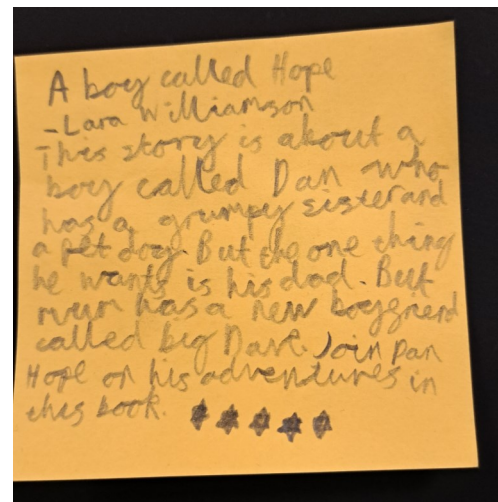 A boy called Hope
-Lara Williamson
This story is about a
boy called Dan who
has a grumpy sister and
a pet dog. But the one thing
he wants is his dad. But
mum has a new boyfriend
called big Dave. Join Dan
Hope on his adventures in
this book. ★★★★★